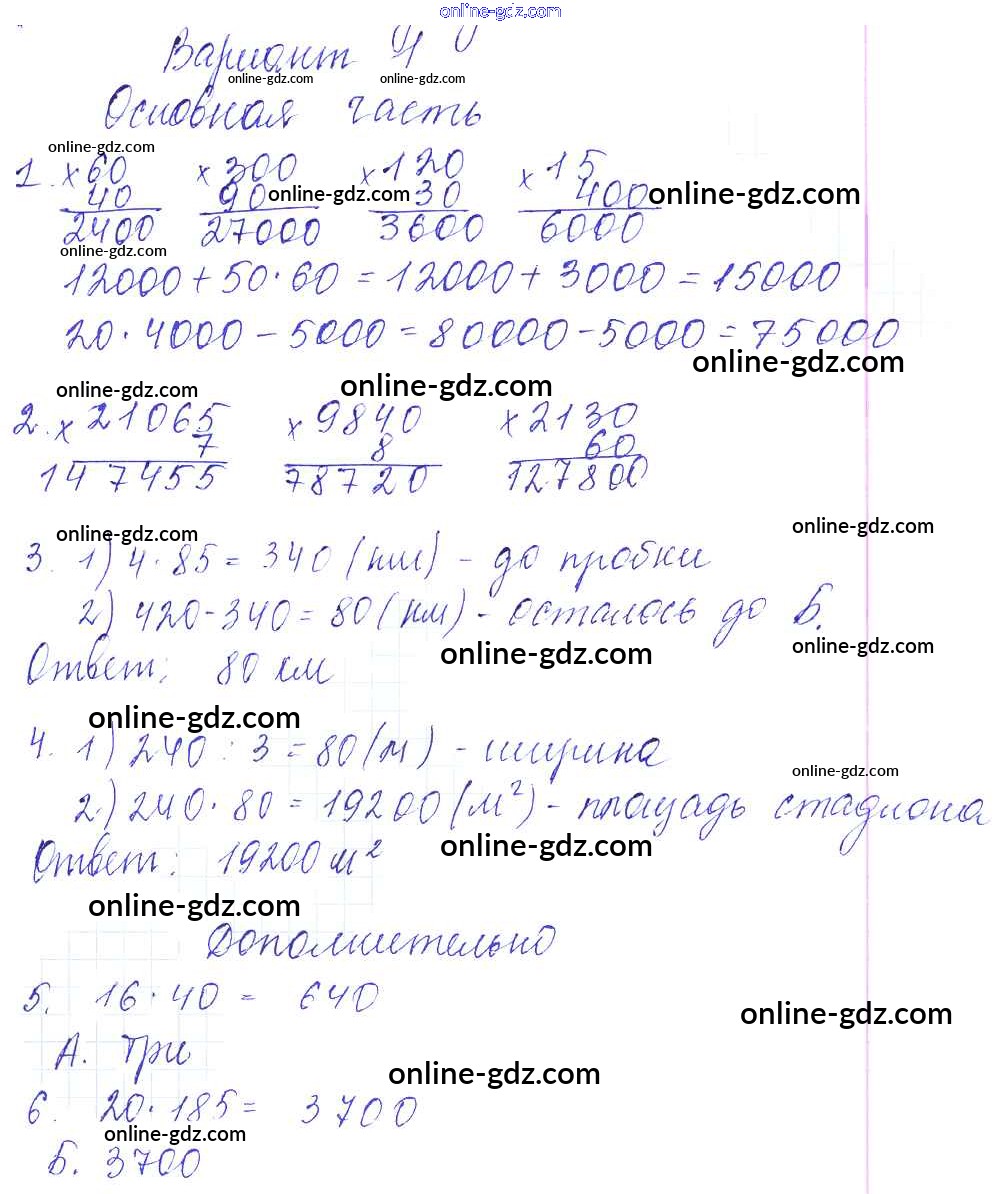 online-gdz.com
Вариант 4
online-gdz.com online-gdz.com
Основная часть
online-gdz.com
1. × 60 × 300 × 120 × 15
40 90 30 400
online-gdz.com online-gdz.com
2400 27000 3600 6000
online-gdz.com
12000 + 50 · 60 = 12000 + 3000 = 15000
20 · 4000 - 5000 = 80000 - 5000 = 75000
online-gdz.com
online-gdz.com online-gdz.com
2. × 21065 × 9840 × 2130
7 8 60
147455 78720 127800
online-gdz.com online-gdz.com
3. 1) 4 · 85 = 340 (км) - до пробки
2) 420 - 340 = 80 (км) - осталось до Б.
online-gdz.com online-gdz.com
Ответ: 80 км
online-gdz.com
4. 1) 240 : 3 = 80 (м) - ширина
online-gdz.com
2) 240 · 80 = 19200 (м²) - площадь стадиона
online-gdz.com
Ответ: 19200 м²
online-gdz.com
Дополнительно
5. 16 · 40 = 640
online-gdz.com
А. Три
online-gdz.com
6. 20 · 185 = 3700
online-gdz.com online-gdz.com
Б. 3700